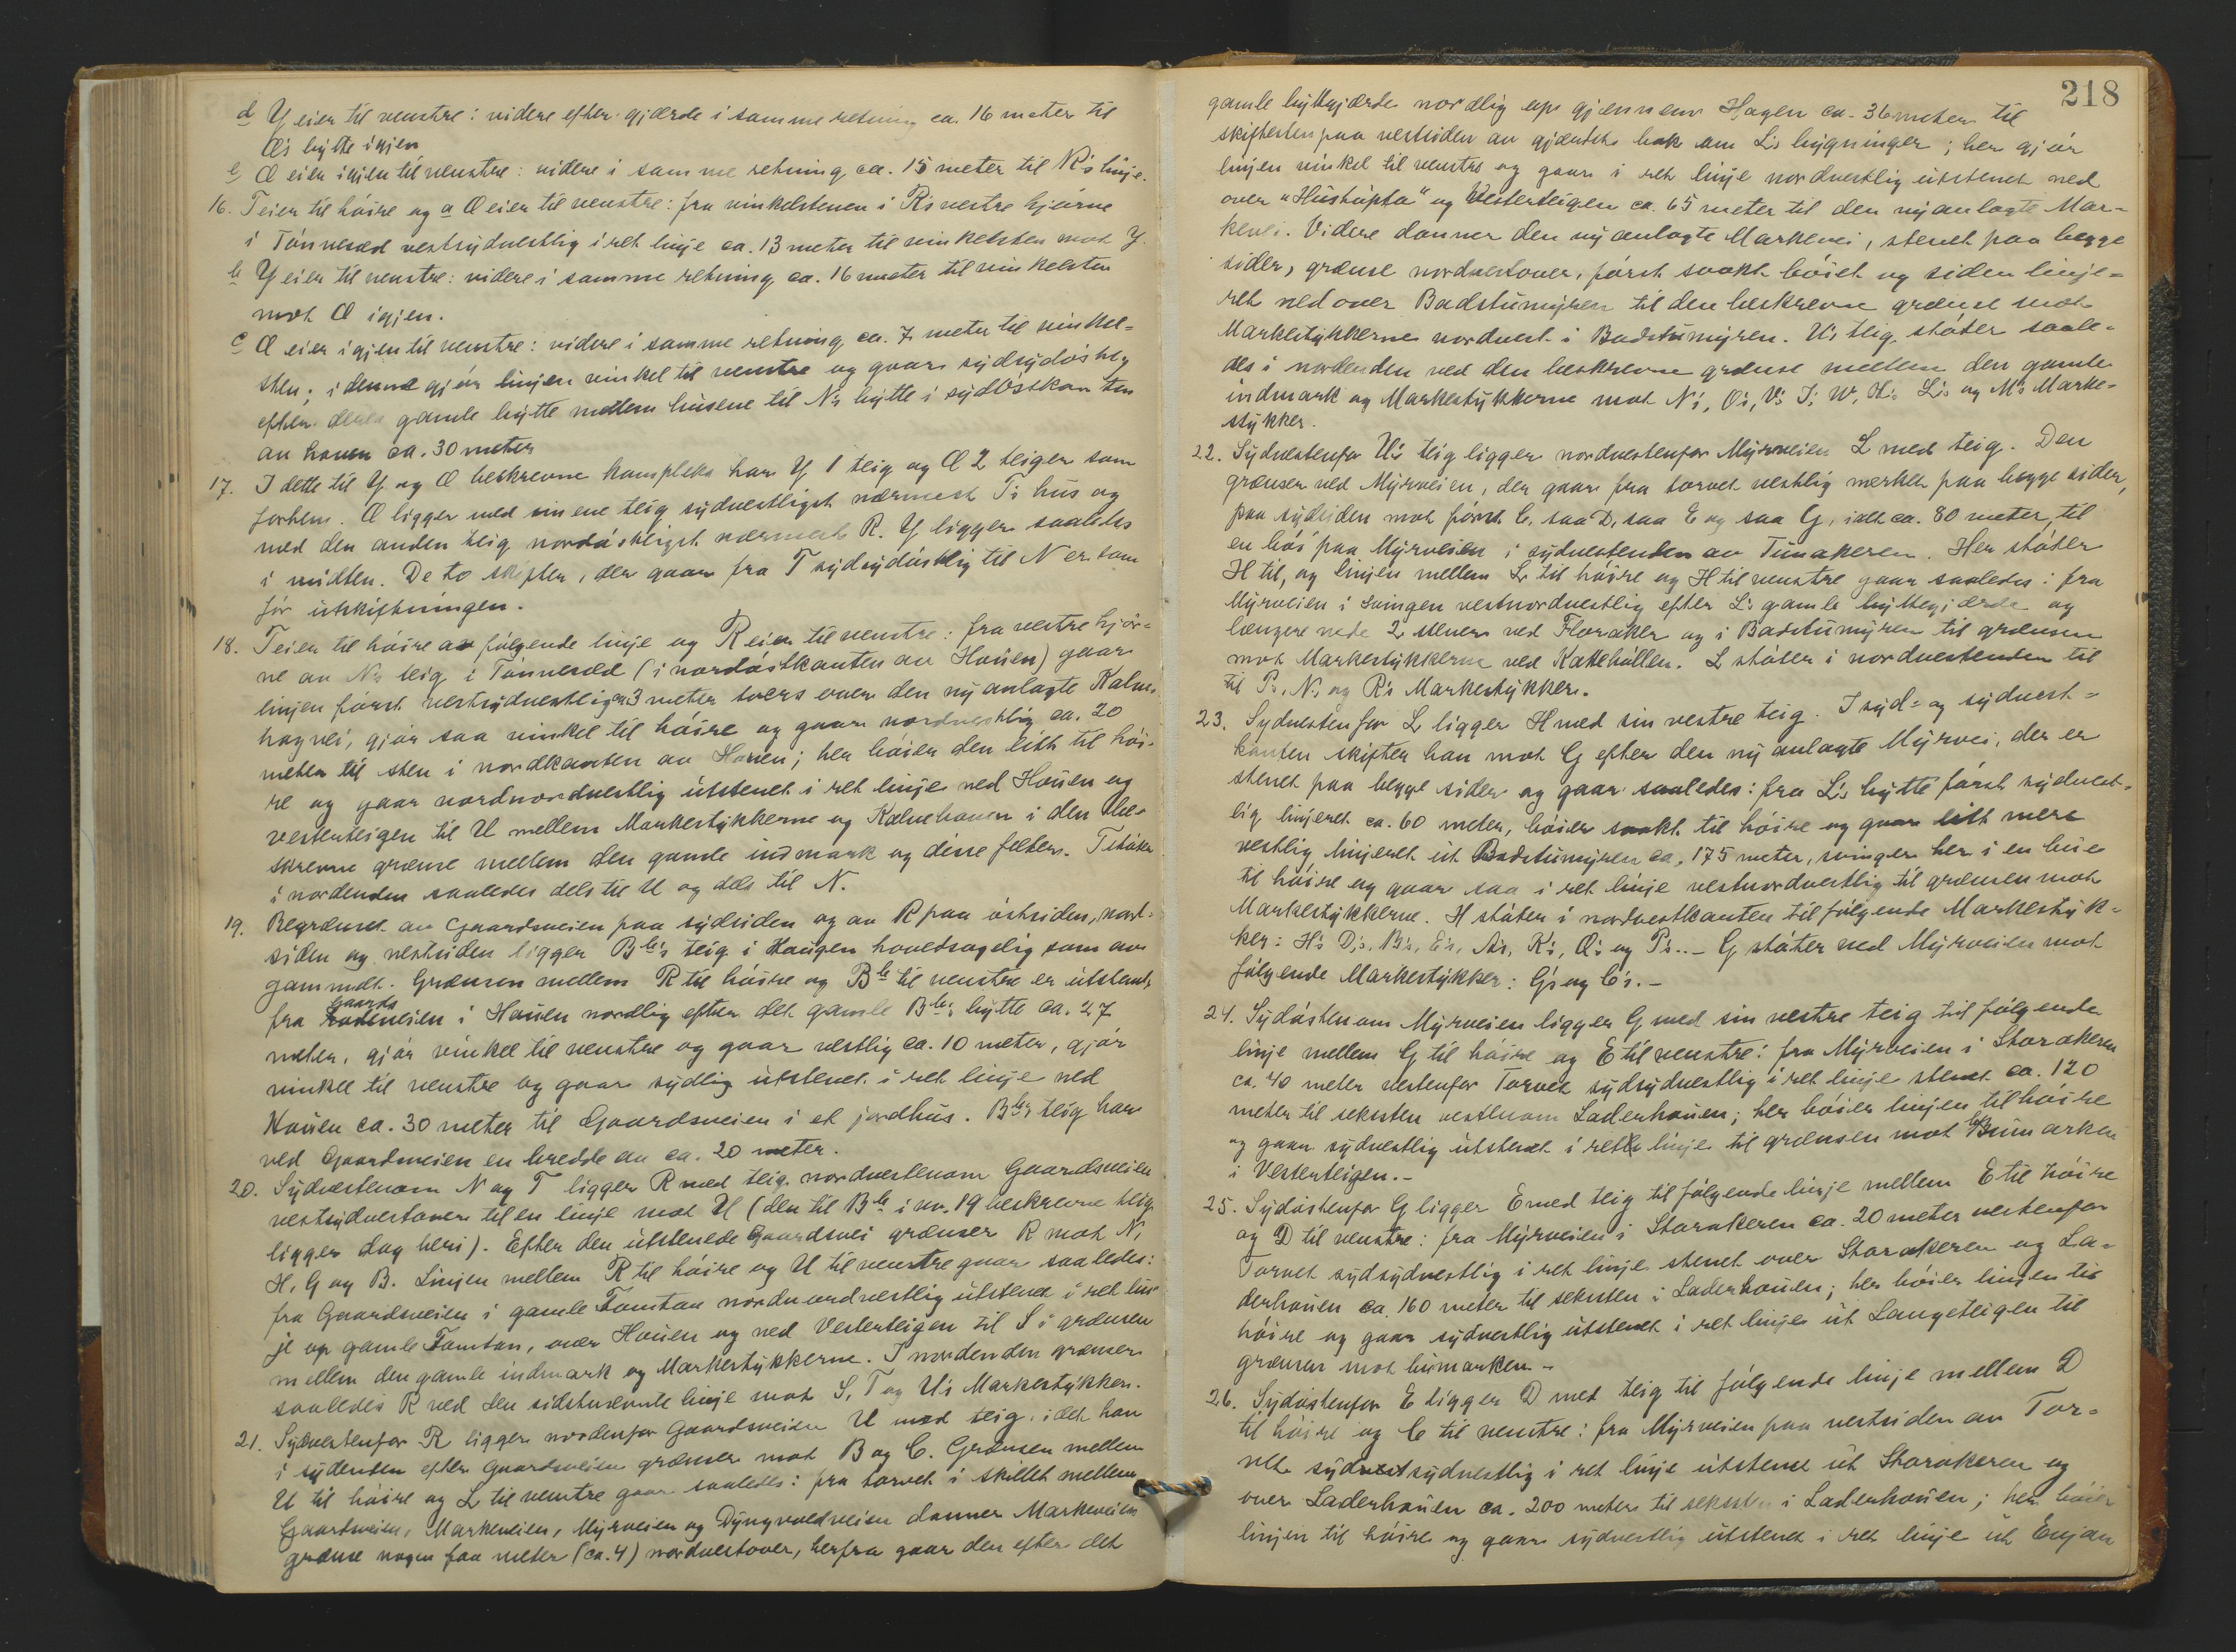 d Y eier til venstre: videre efter gjærde i samme retning ca. 16 meter til
Æ's bytte igjen
e Æ eier igjen til venstre: videre i samme retning ca. 15 meter til R's linje.
16. T eier til høire og a Æ eier til venstre: fra vinkelstenen i R's vestre hjørne
i Tønnesæd vestsydvestlig i ret linje ca. 13 meter til vinkelsten mot Y.
b Y eier til venstre: videre i samme retning ca. 16 meter til vinkelsten
mot Æ igjen.
c Æ eier igjen til venstre: videre i samme retning ca. 7 meter til vinkel=
sten; i denne gjør linjen vinkel til venstre og gaar sydsydøstlig
efter deres gamle bytte mellem husene til N's bytte i sydøstkanten
av haven ca. 30 meter
17. I dette til Y og Æ beskrevne kompleks har Y 1 teig og Æ 2 teiger som
forhen. Æ ligger med sin ene teig sydvestligst nærmest T's hus og
med den anden teig nordøstligst nærmest R. Y ligger saaledes
i midten. De to skifter, der gaar fra T sydsydøstlig til N er som
før utskiftningen.
18. T eier til høire av følgende linje og R eier til venstre: fra vestre hjør=
ne av N's teig i Tønnesæd (i nordøstkanten av Houen) gaar
linjen først vestsydvestlig ca 3 meter tvers over den nyanlagte Kalve
hagvei, gjør saa vinkel til høire og gaar nordvestlig ca. 20
meter til sten i nordkanten av Houen; her bøier den litt til høi=
re og gaar nordnordvestlig utstenet i ret linje ned Houen og
vesterteigen til U mellem Markestykkerne og Kalvehaven i den be=
skrevne grænse mellem den gamle indmark og disse felter. T støter
i nordenden saaledes dels til U og dels til N.
19. Begrænset av Gaardsveien paa sydsiden og av R paa østsiden, nord=
siden og vestsiden ligger Bb's teig i Haugen hovedsagelig som av
gammelt. Grænsen mellem R til høire og Bb til venstre er utstenet
fra Gaardsveien i Houen nordlig efter det gamle Bb's bytte ca. 27
meter, gjør vinkel til venstre og gaar vestlig ca. 10 meter, gjør
vinkel til venstre og gaar sydlig utstenet i ret linje ned
Houen ca. 30 meter til Gaardsveien i et jordhus. Bb's teig har
ved Gaardsveien en bredde av ca. 20 meter.
20. Sydvestenom N og T ligger R med teig nordvestenom Gaardsveien
vestsydvestover til en linje mot U (den til Bb i nr. 19 beskrevne teig
ligger dog heri). Efter den utstenede Gaardsvei grænser R mot N,
H, G og B. Linjen mellem R til høire og U til venstre gaar saaledes:
fra Gaardsveien i gamle Tomtan nordnordvestlig utstenet i ret lin
je op gamle Tomtan, over Houen og ned Vesterteigen til S i grænsen
mellem den gamle indmark og Markestykkerne. I nordenden grænser
saaledes R ved den sidstnævnte linje mot S, T og U's Markestykker.
21. Sydvestenfor R ligger nordenfor Gaardsveien U med teig, idet han
i sydenden efter Gaardsveien grænser mot B og C. Grænsen mellem
U til høire og L til venstre gaar saaledes: fra torvet i skillet mellem
Gaardsveien, Markeveien, Myrveien og Dyngvoldveien danner Markeveien
grænse nogen faa meter (ca. 4) nordvestover, herfra gaar den efter det
218
gamle byttegjærde nordlig op gjennem Hagen ca. 36 meter til
skiftesten paa vestsiden av gjærdet bak om L's bygninger; her gjør
linjen vinkel til venstre og gaar i ret linje nordvestlig utstenet ned
over "Hustufta" og Vesterteigen ca. 65 meter til den nyanlagte Mar=
kevei. Videre danner den nyanlagte Markevei, stenet paa begge
sider, grænse nordvestover, først svakt bøiet og siden linje=
ret nedover Badstumyren til den beskrevne grænse mot
Markestykkerne nordvest i Badstumyren. U's teig støter saale=
des i nordenden ved den beskrevne grænse mellem den gamle
indmark og Markestykkerne mot N's, O's, V's I's W, H's L's og M's Marke=
stykker.
22. Sydvestenfor U's teig ligger nordvestenfor Myrveien L med teig. Den
grænser ved Myrveien, der gaar fra torvet vestlig merket paa begge sider,
paa sydsiden mot først C, saa D, saa E og saa G, ialt ca. 80 meter, til
en bøi paa Myrveien i sydvestenden av Tunakeren. Her støter
H til, og linjen mellem L til høire og H til venstre gaar saaledes: fra
Myrveien i svingen vestnordvestlig efter L's gamle byttegjærde og
længere nede 2 stener ved Floraker og i Badstumyren til grænsen
mot Markestykkerne ved Kattehøllen. L støter i nordvestenden til
til P's, N's og R's Markestykker.
23. Sydvestenfor L ligger H med sin vestre teig. I syd= og sydvest=
kanten skifter han mot G efter den nyanlagte Myrvei, der er
stenet paa begge sider og gaar saaledes: fra L's bytte først sydvest=
lig linjeret ca. 60 meter, bøier svakt til høire og gaar litt mere
vestlig linjeret ut Badstumyren ca. 175 meter, svinger her i en bue
til høire og gaar saa i ret linje vestnordvestlig til grænsen mot
Markestykkerne. H støter i nordvestkanten til følgende Markestyk=
ker: H's D's, B's, E's, A's, K's, Q's og P's. — G støter ved Myrveien mot
følgende Markestykker: G's og C's. —
24. Sydøstenom Myrveien ligger G med sin vestre teig til følgende
linje mellem G til høire og E til venstre: fra Myrveien i Storakeren
ca. 40 meter vestenfor Torvet sydsydvestlig i ret linje stenet ca. 120
meter til seksten vestenom Laderhouen; her bøier linjen til høire
og gaar sydvestlig utstenet i ret linje til grænsen mot Bumarken
i Vesterteigen. —
25. Sydøstenfor G ligger E med teig til følgende linje mellem E til høire
og D til venstre: fra Myrveien i Storakeren ca. 20 meter vestenfor
Torvet sydsydvestlig i ret linje stenet over Storakeren og La=
derhouen ca. 160 meter til seksten i Laderhouen; her bøier linjen til
høire og gaar sydvestlig utstenet i ret linje ut Langeteigen til
grænsen mot bumarken. —
26. Sydøstenfor E ligger D med teig til følgende linje mellem D
til høire og C til venstre: fra Myrveien paa vestsiden av Tor=
vet sydsydvestlig i ret linje utstenet ut Storakeren og
over Laderhouen ca. 200 meter til seksten i Laderhouen; her bøier
linjen til høire og gaar sydvestlig utstenet i ret linje ut Enjan